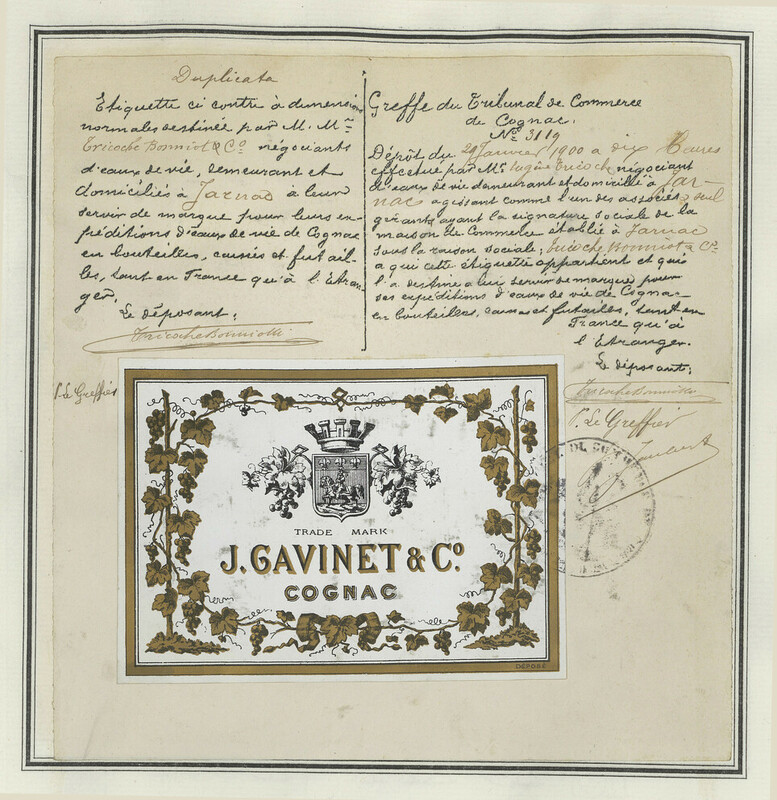 Duplicata
Etiquette ci contre à dimensions
normales destinée par M. Mrs
Tricoche Bonniot & Co négociants
d'eaux de vie, demeurant et
domiciliés à Jarnac à leur
servir de marque pour leurs ex-
péditions d'eaux de vie de Cognac
en bouteilles, caisses et futail-
les, tant en France qu'à l'Etran-
ger.
Le déposant:
Tricoche Bonniot & Co
P. Le Greffier
Greffe du Tribunal de Commerce
de Cognac.
No 3119
Dépôt du 29 Janvier 1900 à dix Heures
effectué par Mr Eugène Tricoche négociant
d'eaux de vie demeurant et domicilié à Jar-
nac agissant comme l'un des associés seul
gérants ayant la signature sociale de la
maison de Commerce établie à Jarnac
sous la raison sociale; Tricoche Bonniot & Co
à qui cette étiquette appartient et qui
l'a destine à lui servir de marque pour
ses expéditions d'eaux de vie de Cognac
en bouteilles, caisses et futailles, tant en
France qu'à
l'Etranger.
Le déposant:
Tricoche Bonniot & Co
P. Le Greffier
TRADE MARK
J. GAVINET & Co
COGNAC
DÉPOSÉ